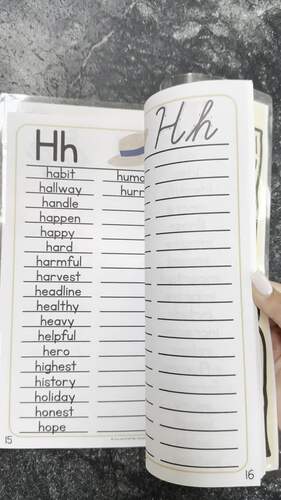 Hh
habit
hallway
handle
happen
happy
hard
harmful
harvest
headline
healthy
heavy
helpful
hero
highest
history
holiday
honest
hope
15
H h
16